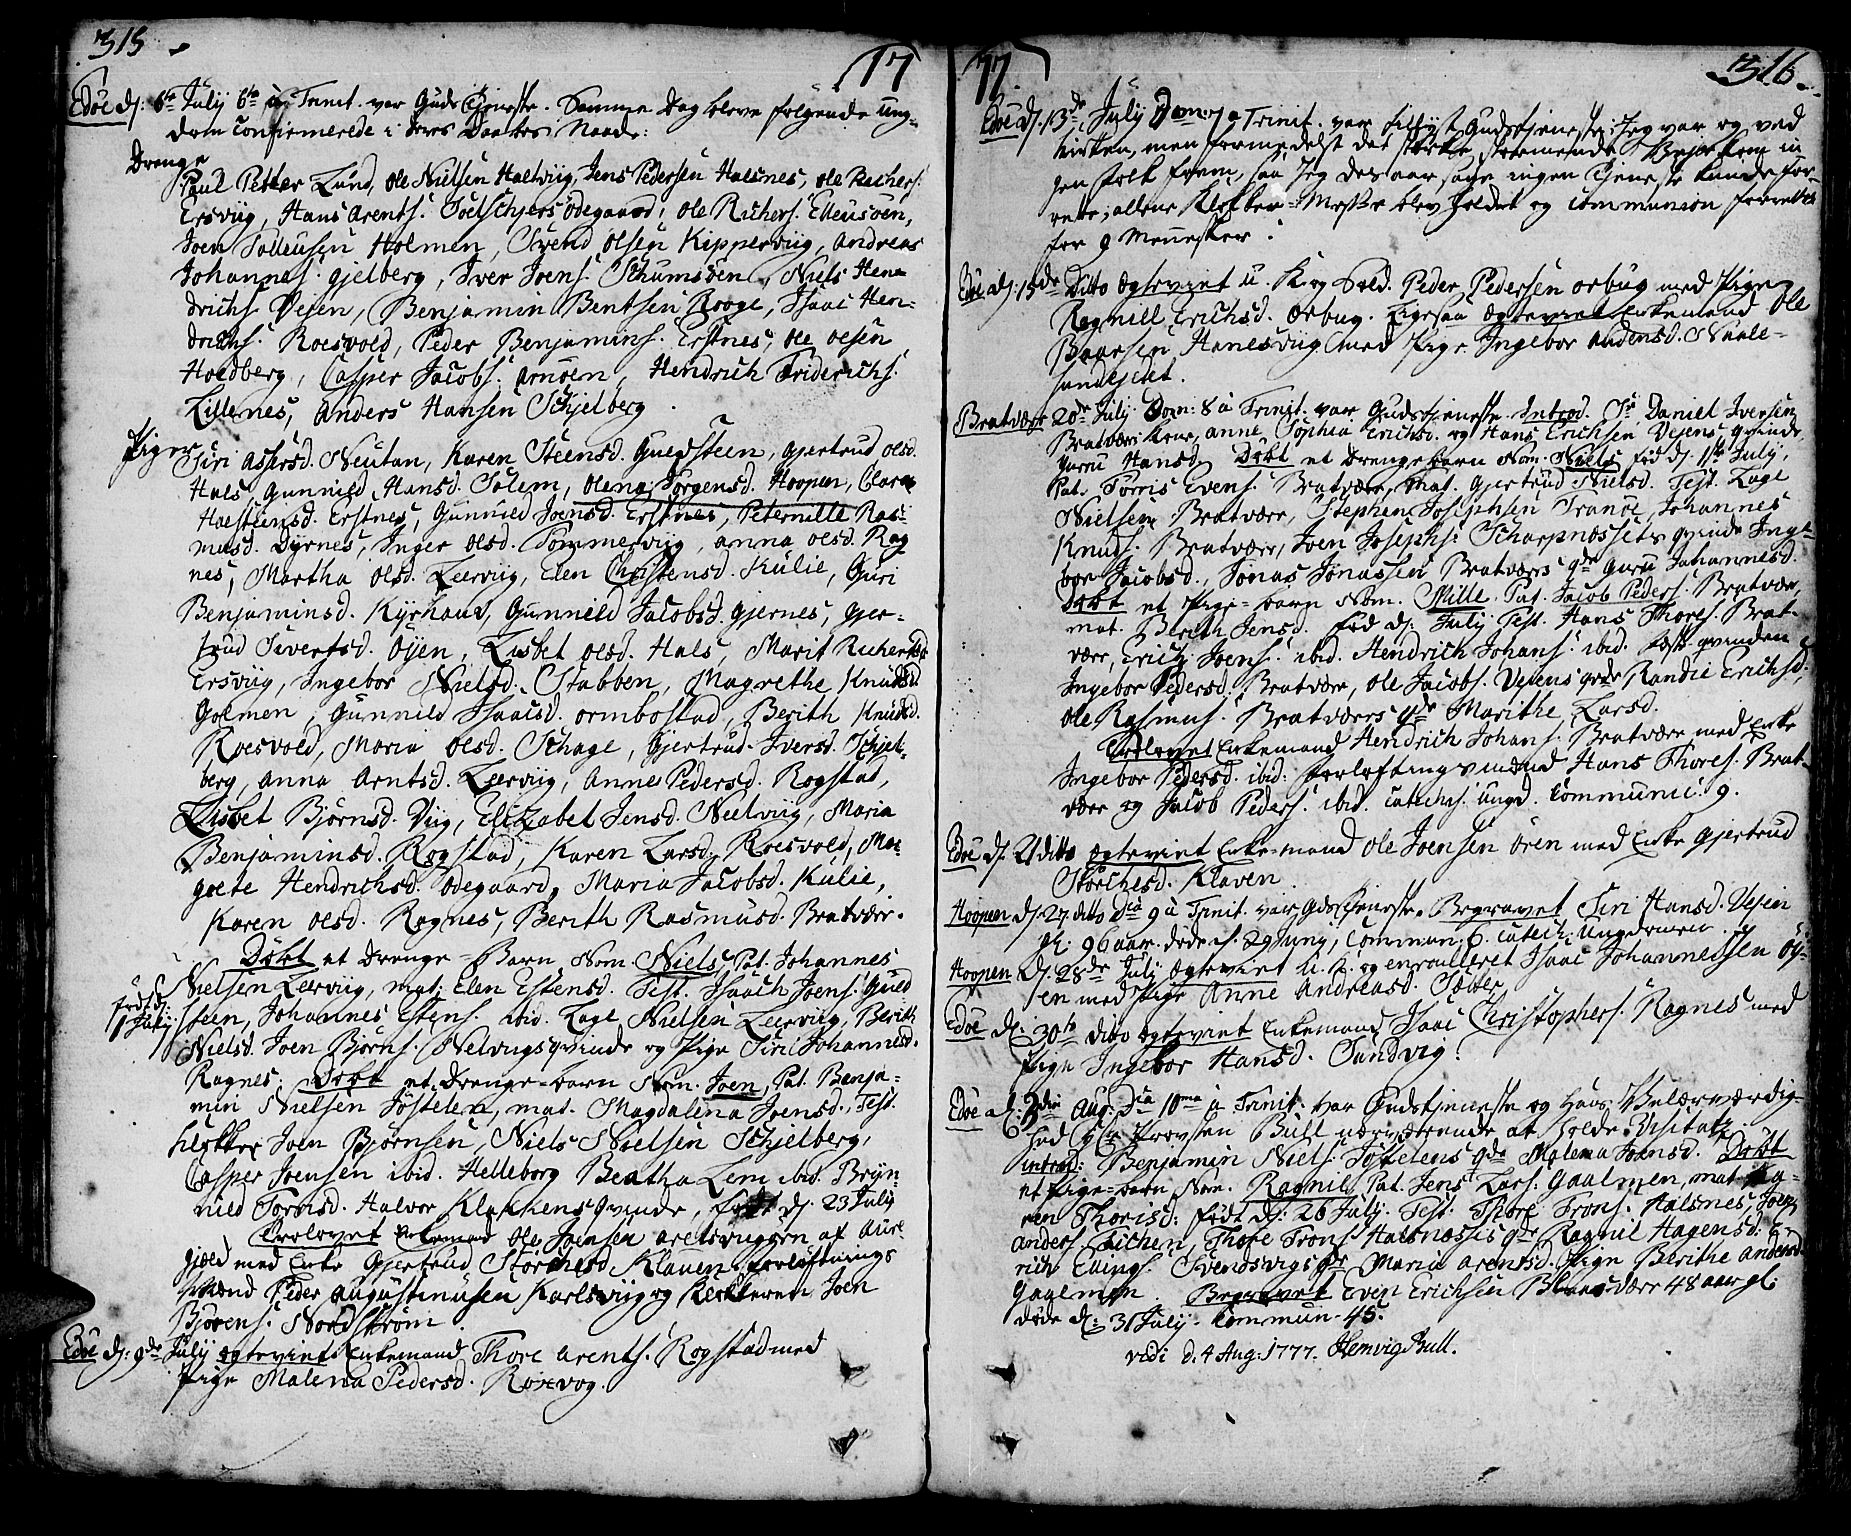 315
17
Edöe dj: 6te July 6te à Trinit. var Guds Tieneste. Samme Dag bleve følgende Ung-
dom Confirmerede i deres Daabes Naade:
Drenge
Paul Petter Lund, Ole Nielsen Haltviig, Jens Pedersen Halsnes, Ole Richers:
Ersviig, Hans Arents: Ødegaard, Ole Richers: Ellensöen,
Joen Tollensen Holmen, Svend Olsen Kipperviig, Andreas
Johannes: Gjelberg, Iver Joens: Schumsöen, Niels Hen-
drichs: Vejen, Benjamin Bentsen Kooge, Isaac Hen-
drichs: Roesvold, Peder Benjamins: Erstnes, Ole Olsen
Holdberg, Casper Jacobs: Arnöen, Hendrich Friderichs:
Lillenes, Anders Hansen Schjelberg.
Piger
Siri Assersd. Neutan, Karen Steensd. Guldsteen, Gjertrud Olsd.
Hals, Gunnild Hansd. Solem, Olena Jörgensd. Hoopen, Claren
Halsteensd. Erstnes, Gunnild Joensd. Erstnes, Peternille Ras-
musd. Dyrnes, Inger Olsd. Tömmerviig, Anna Olsd. Rag
nes, Martha Olsd. Leerviig, Elen Christensd. Kulie, Guri
Benjaminsd. Kyrhaug, Gunnild Jacobsd. Gjernes, Gjer-
trud Sivertsd. Öyen, Lisbet Olsd. Hals, Marit Richertsd.
Ersviig, Ingebor Nielsd. Stabben, Magrethe Knudsd.
Golmen, Gunnild Isaacsd. Ormbostad, Berith Knudsd.
Roesvold, Maria Olsd. Schage, Gjertrud Iversd. Schjel-
berg, Anna Arntsd. Leerviig, Anne Pedersd. Rogstad,
Lisbet Bjørnsd. Viig, Elizabet Jensd. Neelviig, Maria
Benjaminsd. Rogstad, Karen Larsd. Roesvold, Mar-
grete Hendrichsd. Ødegaard, Maria Jacobsd. Kulie,
Karen Olsd. Ragnes, Berith Rasmusd. Bratvær.
Döbt et Drenge-Barn Nom. Niels Pat. Johannes
Nielsen Leerviig, mat: Elen Estensd. Test. Isaach Joens: Guld
föd dj:
1 July
steen, Johannes Estens: ibid. Lage Nielsen Leerviig, Berith
Nielsd. Joen Bjørns: Nelvugs qvinde og Pige Siri Johannesd.
Ragnes. Döbt et Drenge-barn Nom. Joen, Pat. Benja-
min Nielsen Jøstelen, mat. Magdalena Joensd., Test.
Klokker Joen Bjørnsen, Niels Nielsen Schjelberg,
Casper Joensen ibid. Helleborg Beatha Lem ibid. Bryn-
nild Torrisd. Halvor Klakkens qvinde, født dj: 23 July
Trolovet Enkemand Ole Joensen af Aure-
gjeld med Enke Gjertrud Störchesd. Klaven. Forløftnings
Mænd Peder Augustinusen Karlsviig og Klokkeren Joen
Bjørens: Nordstrøm.
Edöe dj: 9de July Egteviet Enkemand Thore Arents: Rogstad med
Pige Malena Pedersd. Roxvog.
77.
316
Edöe dj: 13de July Dom: 7 à Trinit. var tillyst Gudstjeneste; Jeg var og ved
Kirken, men formedelst det stærke stormende Vejr kom in
gen folk frem, saa Jeg der aar sage ingen Tjeneste kunde for-
rette; allene Klokker-Messe blev holdet og Communion forrettet
for 9 Mennesker.
Edöe dj: 15de Ditto Egteviet U. K. og Sold. Peder Pedersen Orbug med Pige
Ragnill Erichsd. Orbug. Ligesaa Egteviet Enkemand Ole
Baarsen Hanesviig med Pige Ingebor Andersd. Naale-
sundejdet.
Bratvær 20de July Dom: 8 à Trinit. var Gudstjeneste. Introd. Sr. Daniel Iversen
Bratværs Kone, Anne Sophia Erichsd. og Hans Erichsen Vejens qvinde
Guru Hansd. Döbt et Drengebarn Nom. Niels, föd dj: 1ste July,
Pat. Torris Evens: Bratvær, Mat. Gjertrud Nielsd. Test. Lage
Nielsen Bratvær, Stephen Josephsen Tranöe, Johannes
Knuds: Bratvær, Joen Josephs: Scharpnæssets qvinde Inge-
bor Jacobsd., Jonas Jonassen Bratværs qde Guru Johannesd.
Döbt et Pige-barn Nom. Mille Pat. Jacob Peders: Bratvær,
mat. Berith Jensd. föd dj: July Test. Hans Thores: Brat-
vær, Erich Joens: ibid. Hendrich Johans: ibid. Fæste-qvinden
Ingebor Pedersd. Bratvær, Ole Jacobs. Vejens qde Randie Erichsd.,
Ole Rasmus: Bratværs qde Marithe Larsd.
Trolovet Enkemand Hendrich Johans: Bratvær med Enke
Ingebor Pedersd. ibid: Forløftningsmænd Hans Thores: Brat-
vær og Jacob Peders: ibid. Catechis: Ungd. Communic: 9.
Edöe dj: 21 ditto Egteviet Enke-mand Ole Joensen Ören med Enke Gjertrud
Störchesd. Klaven.
Hoopen dj: 27. ditto Dca 9 à Trinit. var Gds Tieneste. Begravet Siri Hansd. Vejen
gl: 96 aar. døde dj. 29 Juny, Commun: 6. Catech: Ungdommen.
Hoopen dj: 28de July Egteviet U. K. og enroulleret Isaac Johannessen Öy-
en med Pige Anne Andreasd. Sætter
Edöe dj: 30te dito Egteviet Enkemand Isaac Christophers: Ragnes med
Pige Ingebor Hansd. Sundvig.
Edöe dj: 3die Aug: Dca 10ma à Trinit. var Gudstjeneste og Hans Velærværdig-
hed Hr Provsten Bull nærværende at holde Visitatz.
introd: Benjamin Niels: Jøstelens qde Malena Joensd. Döbt
et Pige-barn Nom. Ragnil, Pat. Jens Lars: Gaalmen, mat. Ka-
ren Thorisd: født dj: 26 July. Test: Thore Trons: Halsnes, Joen
Anders: Eichen, Thore Trons: Halsnæssis qde Ragnil Hagensd: E-
rich Ellings: Svendsvigs qde Maria Arentsd. Pige Berithe Andersd.
Gaalmen. Begravet Even Erichsen Bratvær 48 aar gl:
døde dj: 31 July. Commun: 45.
vidi d. 4 Aug: 1777. Hemvig Bull.